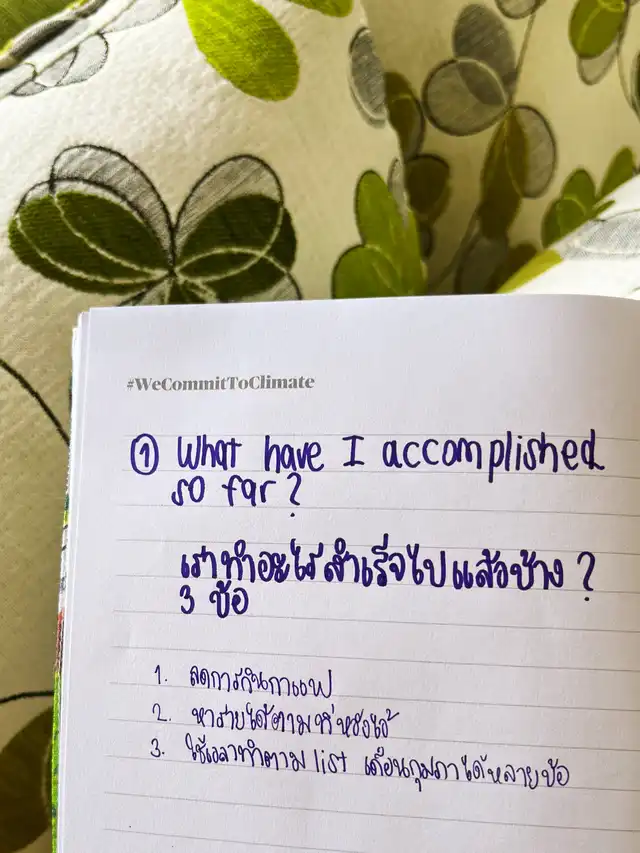 #WeCommitToClimate
① What have I accomplished
so far?
เราทำอะไรสำเร็จไปแล้วบ้าง?
3 ข้อ
1. ลดการกินกาแฟ
2. หารายได้ตามที่หวังไว้
3. ใช้เวลาทำตาม list เดือนกุมภาได้หลายข้อ